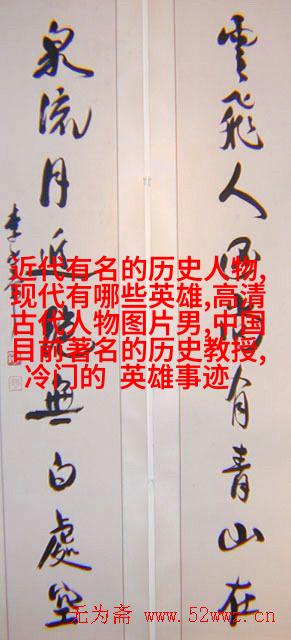 雲飛人有青山在
泉流月無白處空
近代有名的历史人物,
现代有哪些英雄,高清
古代人物图片男,中国
目前著名的历史教授,
冷门的 英雄事迹
无为斋 www.52wwz.cn